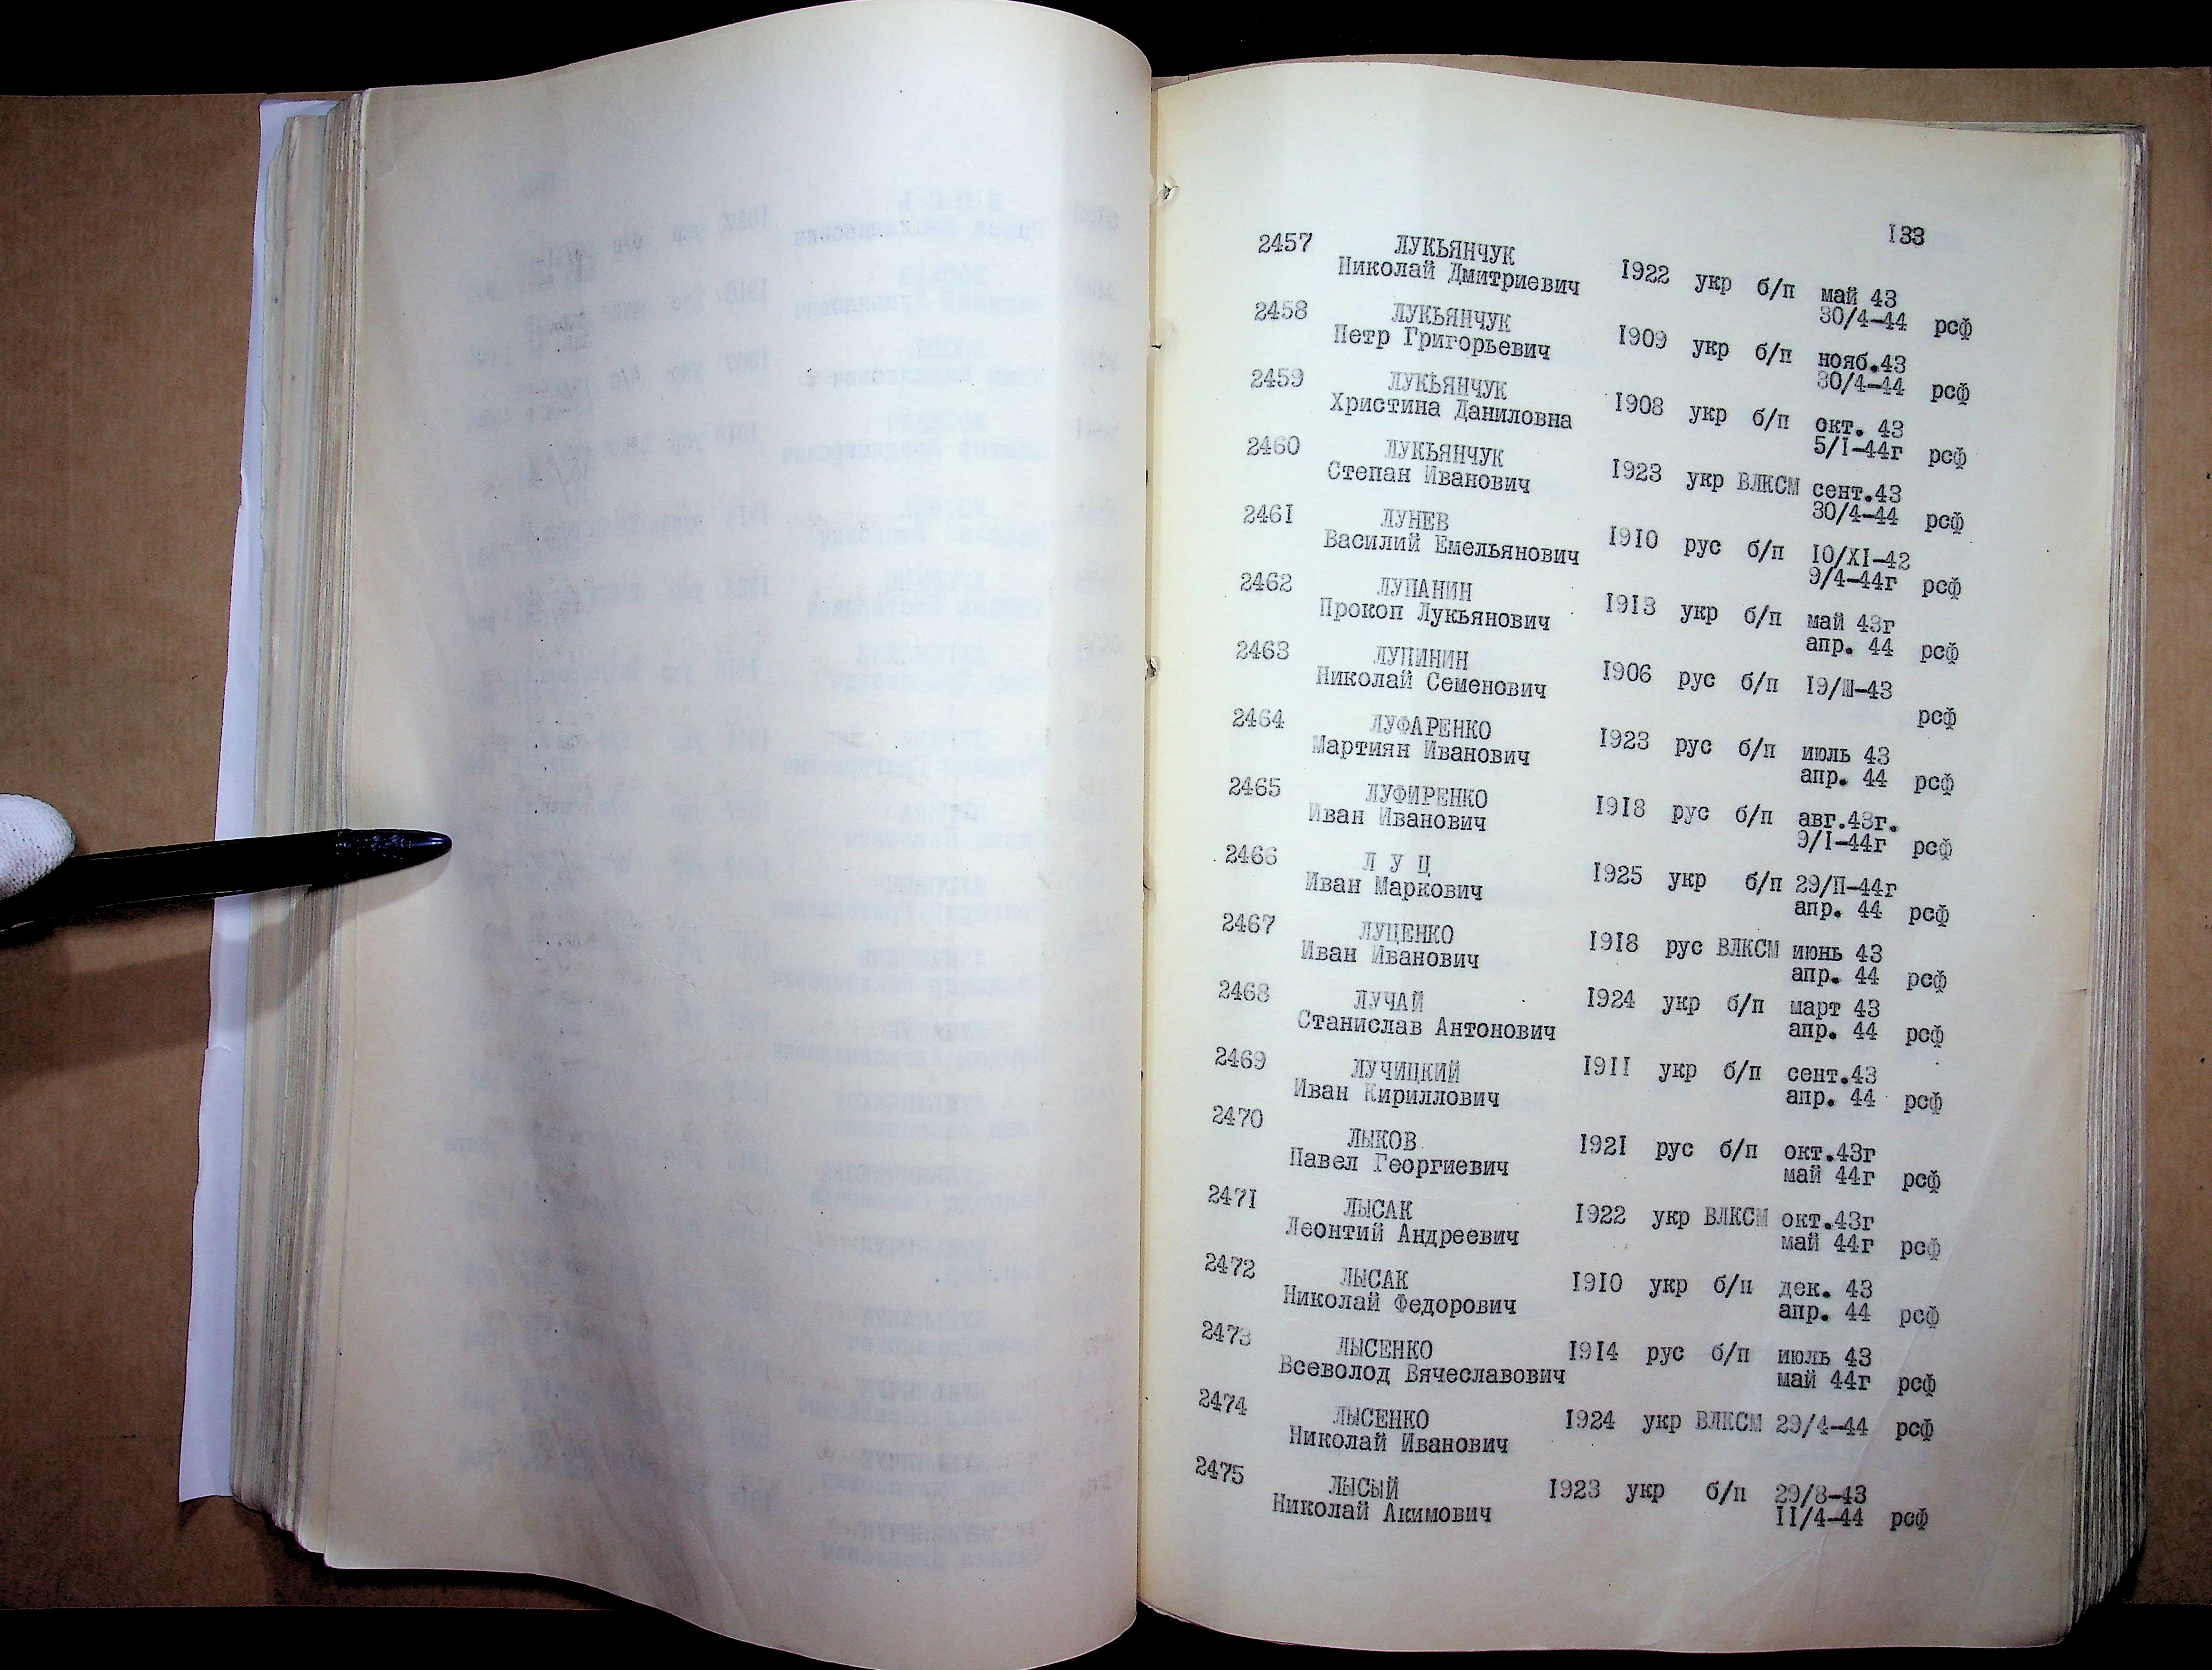 133
2457 ЛУКЬЯНЧУК
Николай Дмитриевич 1922 укр б/п май 43
30/4-44 рсф
2458 ЛУКЬЯНЧУК
Петр Григорьевич 1909 укр б/п нояб.43
30/4-44 рсф
2459 ЛУКЬЯНЧУК
Христина Даниловна 1908 укр б/п окт. 43
5/I-44г рсф
2460 ЛУКЬЯНЧУК
Степан Иванович 1923 укр ВЛКСМ сент.43
30/4-44 рсф
2461 ЛУНЕВ
Василий Емельянович 1910 рус б/п 10/XI-42
9/4-44г рсф
2462 ЛУПАНИН
Прокоп Лукьянович 1913 укр б/п май 43г
апр. 44 рсф
2463 ЛУПИНИН
Николай Семенович 1906 рус б/п 19/Ш-43
рсф
2464 ЛУФАРЕНКО
Мартиян Иванович 1923 рус б/п июль 43
апр. 44 рсф
2465 ЛУФИРЕНКО
Иван Иванович 1918 рус б/п авг.43г.
9/I-44г рсф
2466 Л У Ц
Иван Маркович 1925 укр б/п 29/П-44г
апр. 44 рсф
2467 ЛУЦЕНКО
Иван Иванович 1918 рус ВЛКСМ июнь 43
апр. 44 рсф
2468 ЛУЧАЙ 1924 укр б/п март 43
Станислав Антонович апр. 44 рсф
2469 ЛУЧИЦКИЙ 1911 укр б/п сент.43
Иван Кириллович апр. 44 рсф
2470 ЛЫКОВ 1921 рус б/п окт.43г
Павел Георгиевич май 44г рсф
2471 ЛЫСАК 1922 укр ВЛКСМ окт.43г
Леонтий Андреевич май 44г рсф
2472 ЛЫСАК 1910 укр б/п дек. 43
Николай Федорович апр. 44 рсф
2473 ЛЫСЕНКО 1914 рус б/п июль 43
Всеволод Вячеславович май 44г рсф
2474 ЛЫСЕНКО 1924 укр ВЛКСМ 29/4-44 рсф
Николай Иванович
2475 ЛЫСЫЙ 1923 укр б/п 29/8-43
Николай Акимович 11/4-44 рсф